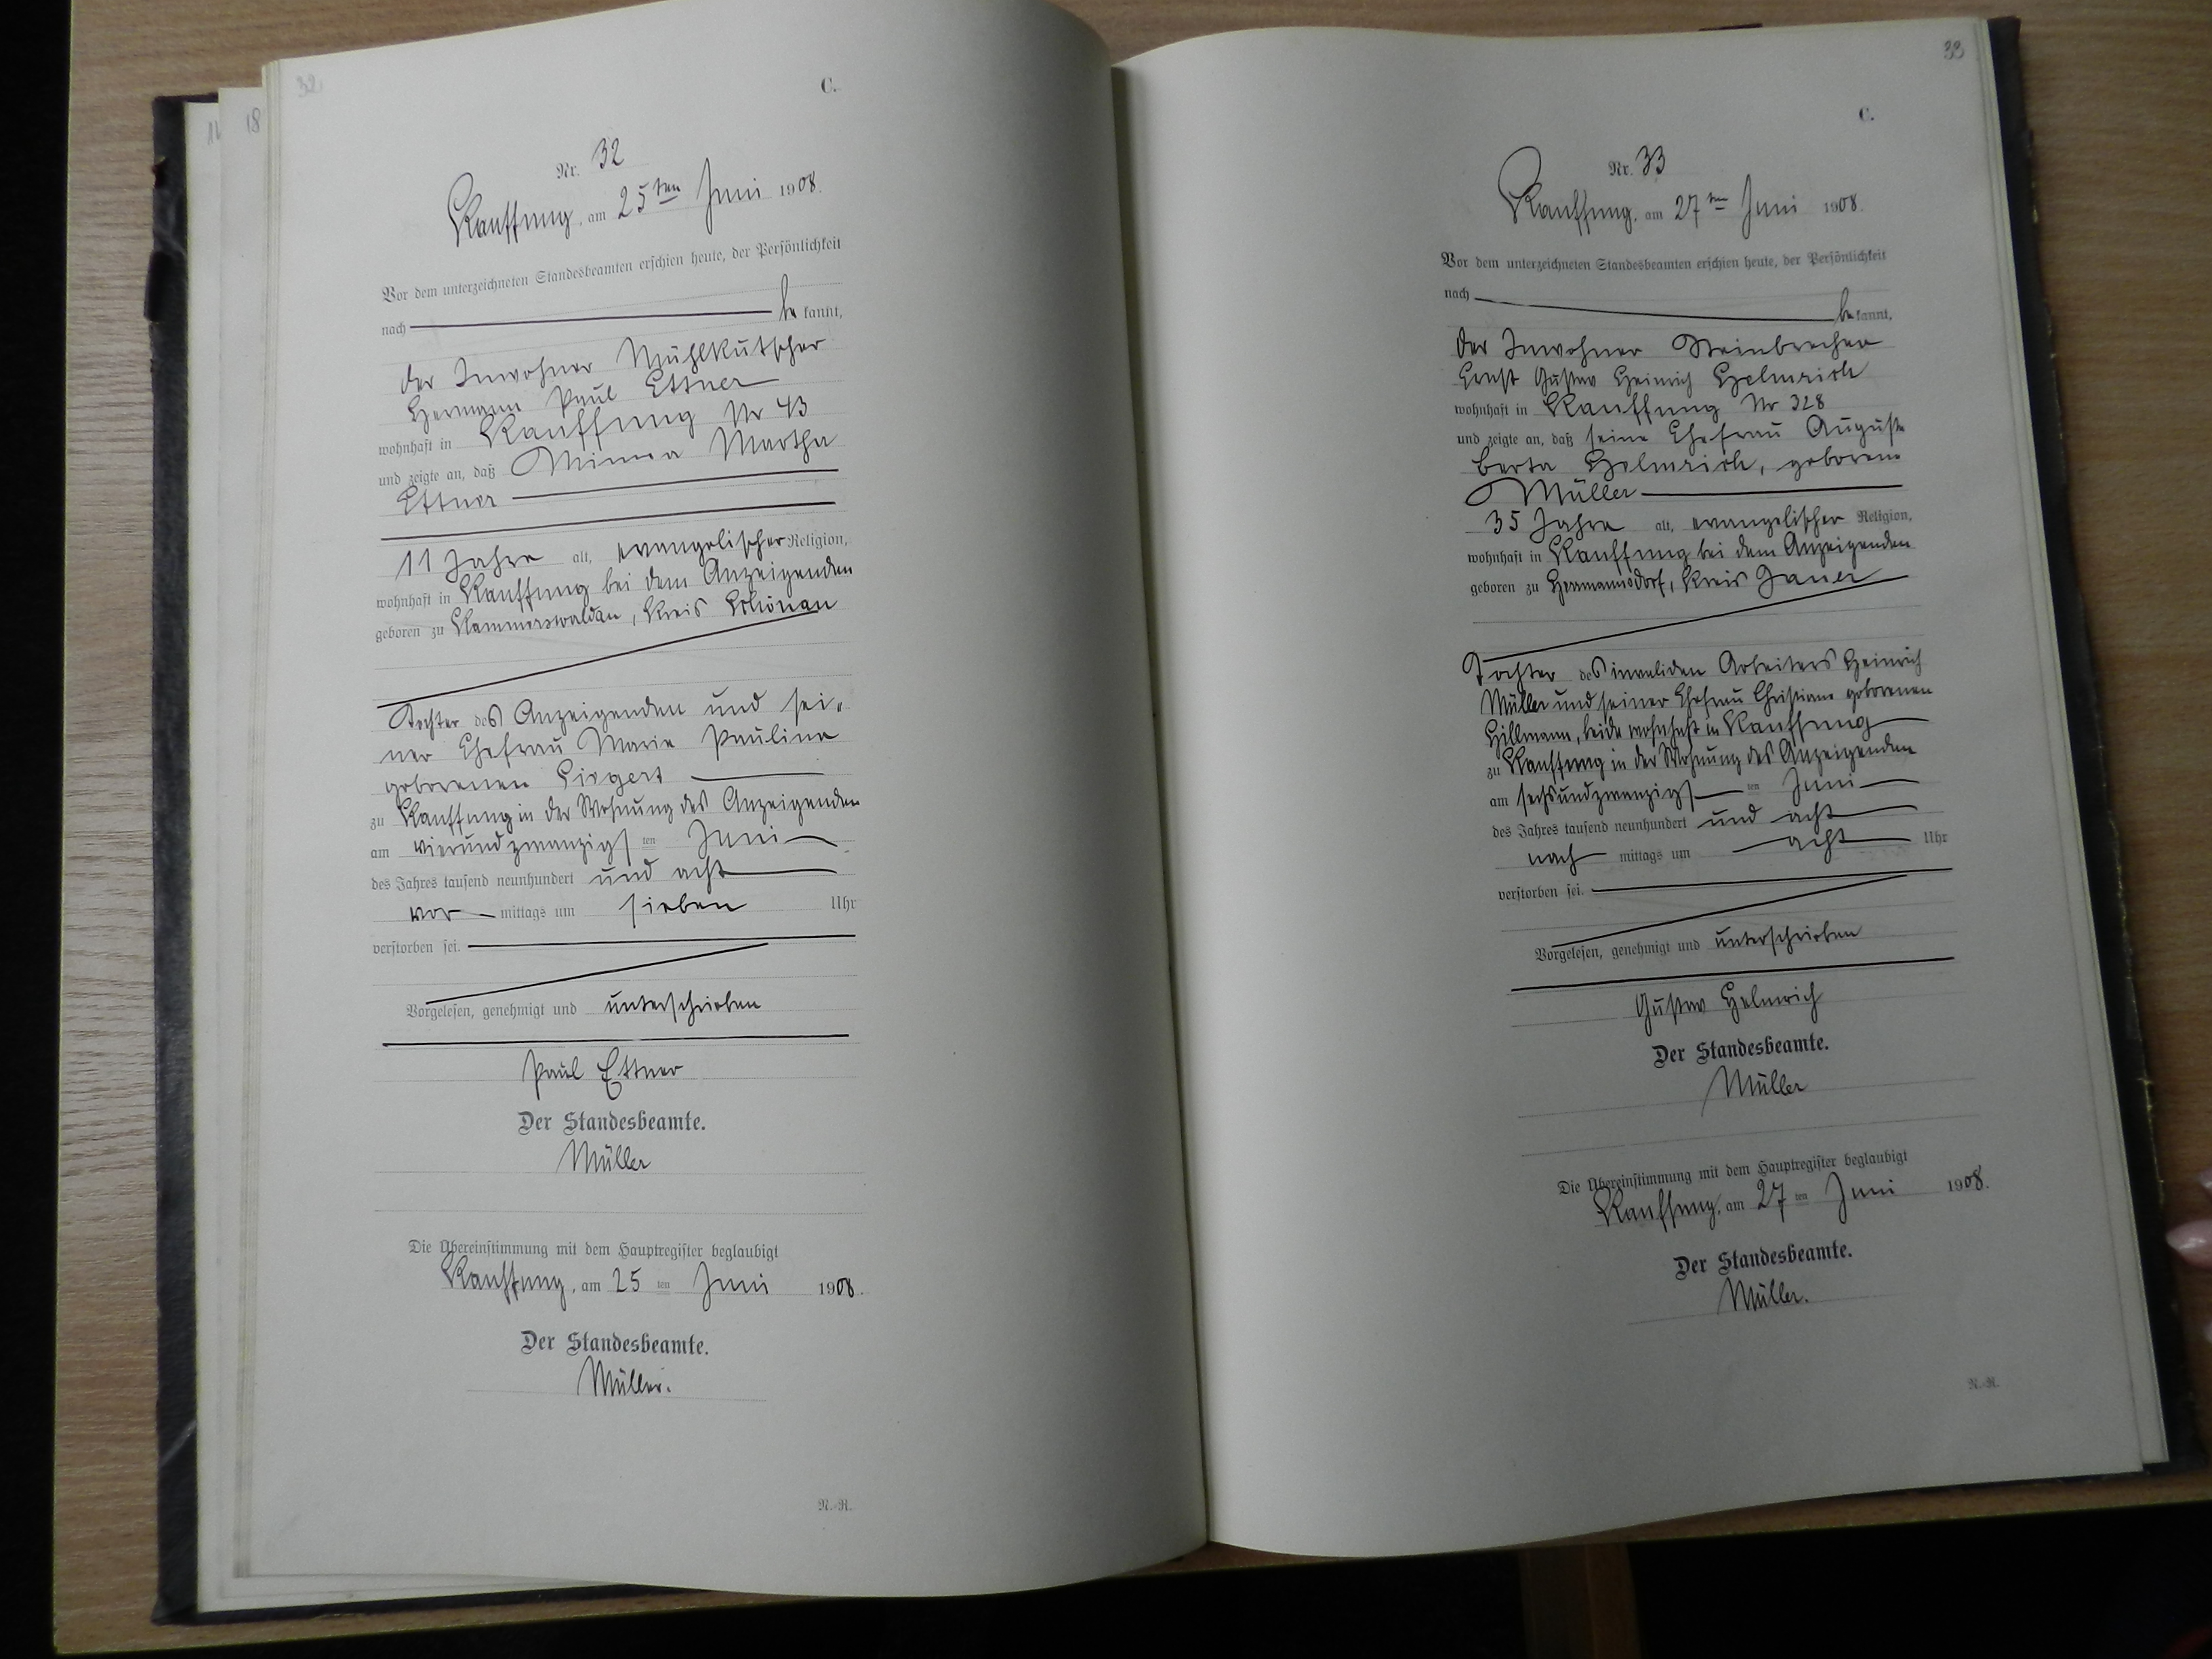 32
C.
Nr. 32
Kauffung, am 25ten Juni 1908.
Vor dem unterzeichneten Standesbeamten erschien heute, der Persönlichkeit
nach be kannt,
der Inwohner Mühlkutscher
Hermann Paul Ettner
wohnhaft in Kauffung Nr 43
und zeigte an, daß Minna Martha
Ettner
11 Jahre alt, evangelischer Religion,
wohnhaft in Kauffung bei dem Anzeigenden
geboren zu Kammerswaldau, Kreis Schönau
Tochter des Anzeigenden und sei-
ner Ehefrau Marie Pauline
geborenen Siegert
zu Kauffung in der Wohnung des Anzeigenden
am vierundzwanzigsten Juni
des Jahres tausend neunhundert und acht
vor mittags um sieben Uhr
verstorben sei.
Vorgelesen, genehmigt und unterschrieben
Paul Ettner
Der Standesbeamte.
Müller
Die Übereinstimmung mit dem Hauptregister beglaubigt
Kauffung, am 25 ten Juni 1908.
Der Standesbeamte.
Müller.
N.-R.
18
33
C.
Nr. 33
Kauffung, am 27ten Juni 1908.
Vor dem unterzeichneten Standesbeamten erschien heute, der Persönlichkeit
nach be kannt,
der Inwohner Steinbrecher
Ernst Gustav Heinrich Helmrich
wohnhaft in Kauffung Nr 328
und zeigte an, daß seine Ehefrau Auguste
Berta Helmrich, geborene
Müller
35 Jahre alt, evangelischer Religion,
wohnhaft in Kauffung bei dem Anzeigenden
geboren zu Hermannsdorf, Kreis Jauer
Tochter des invaliden Arbeiters Heinrich
Müller und seiner Ehefrau Christiane geborenen
Hillmann, beide wohnhaft in Kauffung
zu Kauffung in der Wohnung des Anzeigenden
am sechsundzwanzigsten Juni
des Jahres tausend neunhundert und acht
nach mittags um acht Uhr
verstorben sei.
Vorgelesen, genehmigt und unterschrieben
Gustav Helmrich
Der Standesbeamte.
Müller
Die Übereinstimmung mit dem Hauptregister beglaubigt
Kauffung, am 27 ten Juni 1908.
Der Standesbeamte.
Müller.
N.-R.